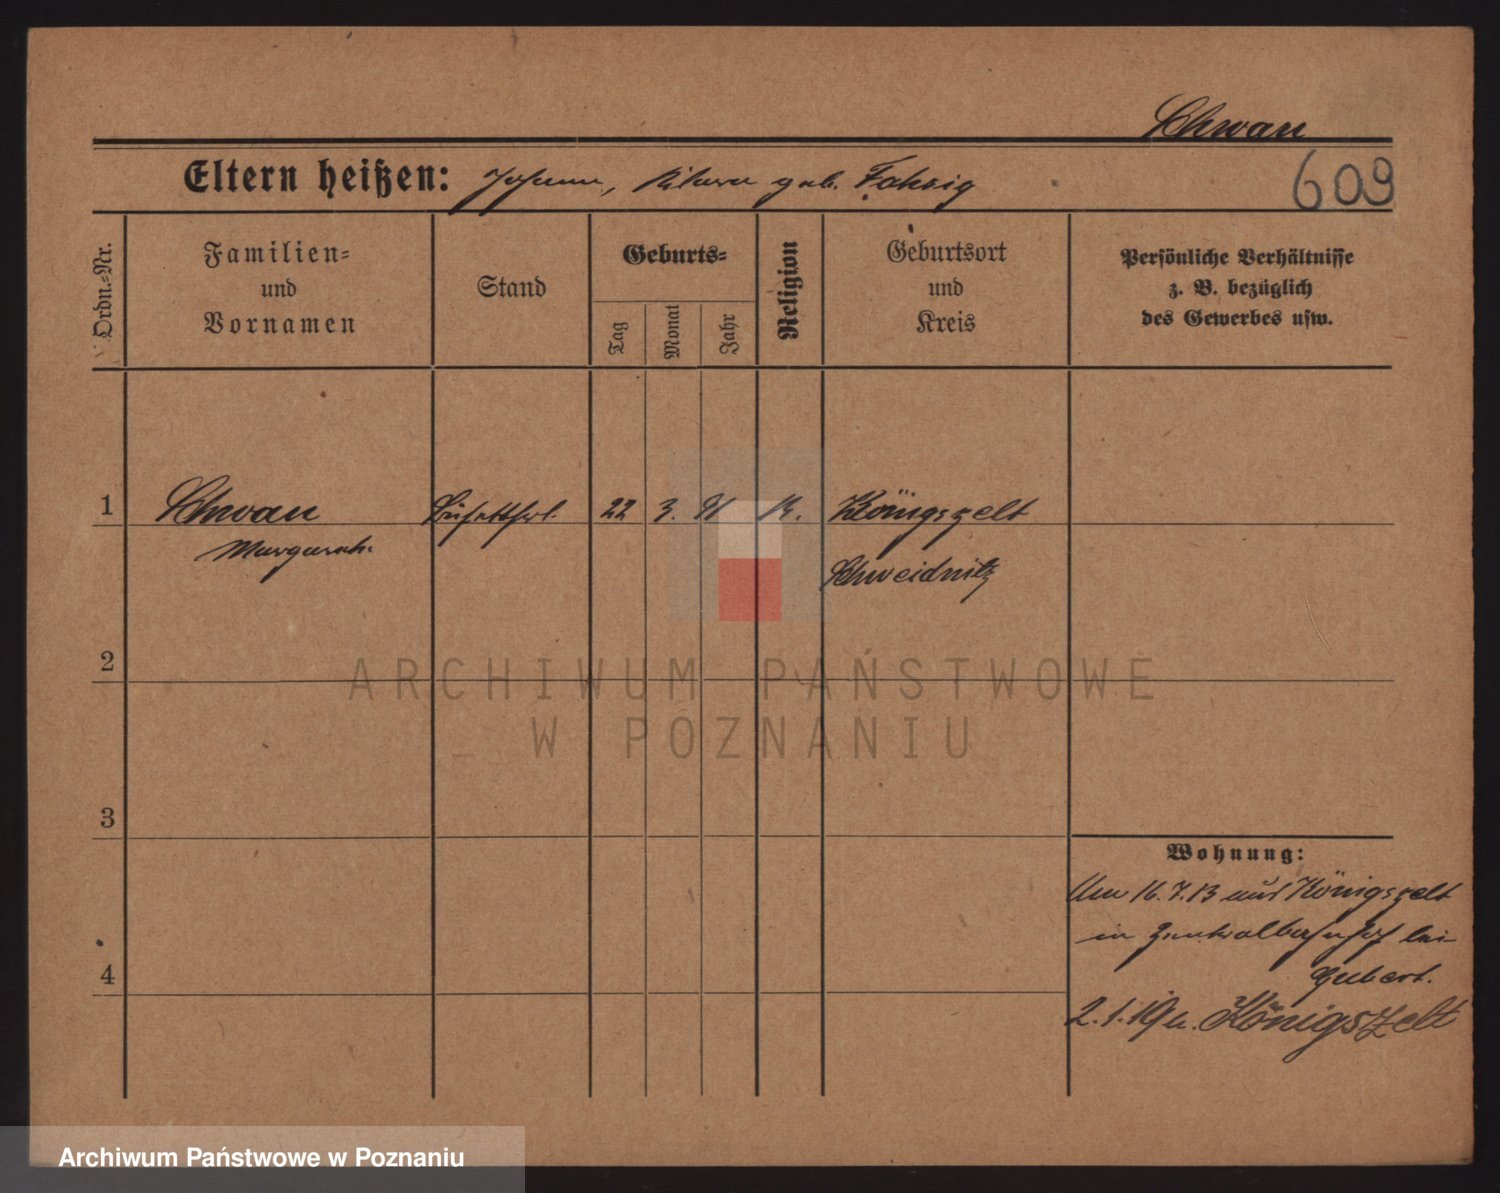 Schwan
Eltern heißen: Johann, Klara geb. Fahrig
609
Ordn.=Nr.
Familien=
und
Vornamen
Stand
Geburts=
Tag
Monat
Jahr
Religion
Geburtsort
und
Kreis
Persönliche Verhältnisse
z. B. bezüglich
des Gewerbes usw.
1 Schwan Büfettfrl. 22 3. 91 K. Königszelt
Margareth.
Schweidnitz
2
3
4
Wohnung:
Am 16.7.13 aus Königszelt
in Zentralbahnhof bei
2.1.19 n. Königszelt
ARCHIWUM PAŃSTWOWE
W POZNANIU
Archiwum Państwowe w Poznaniu